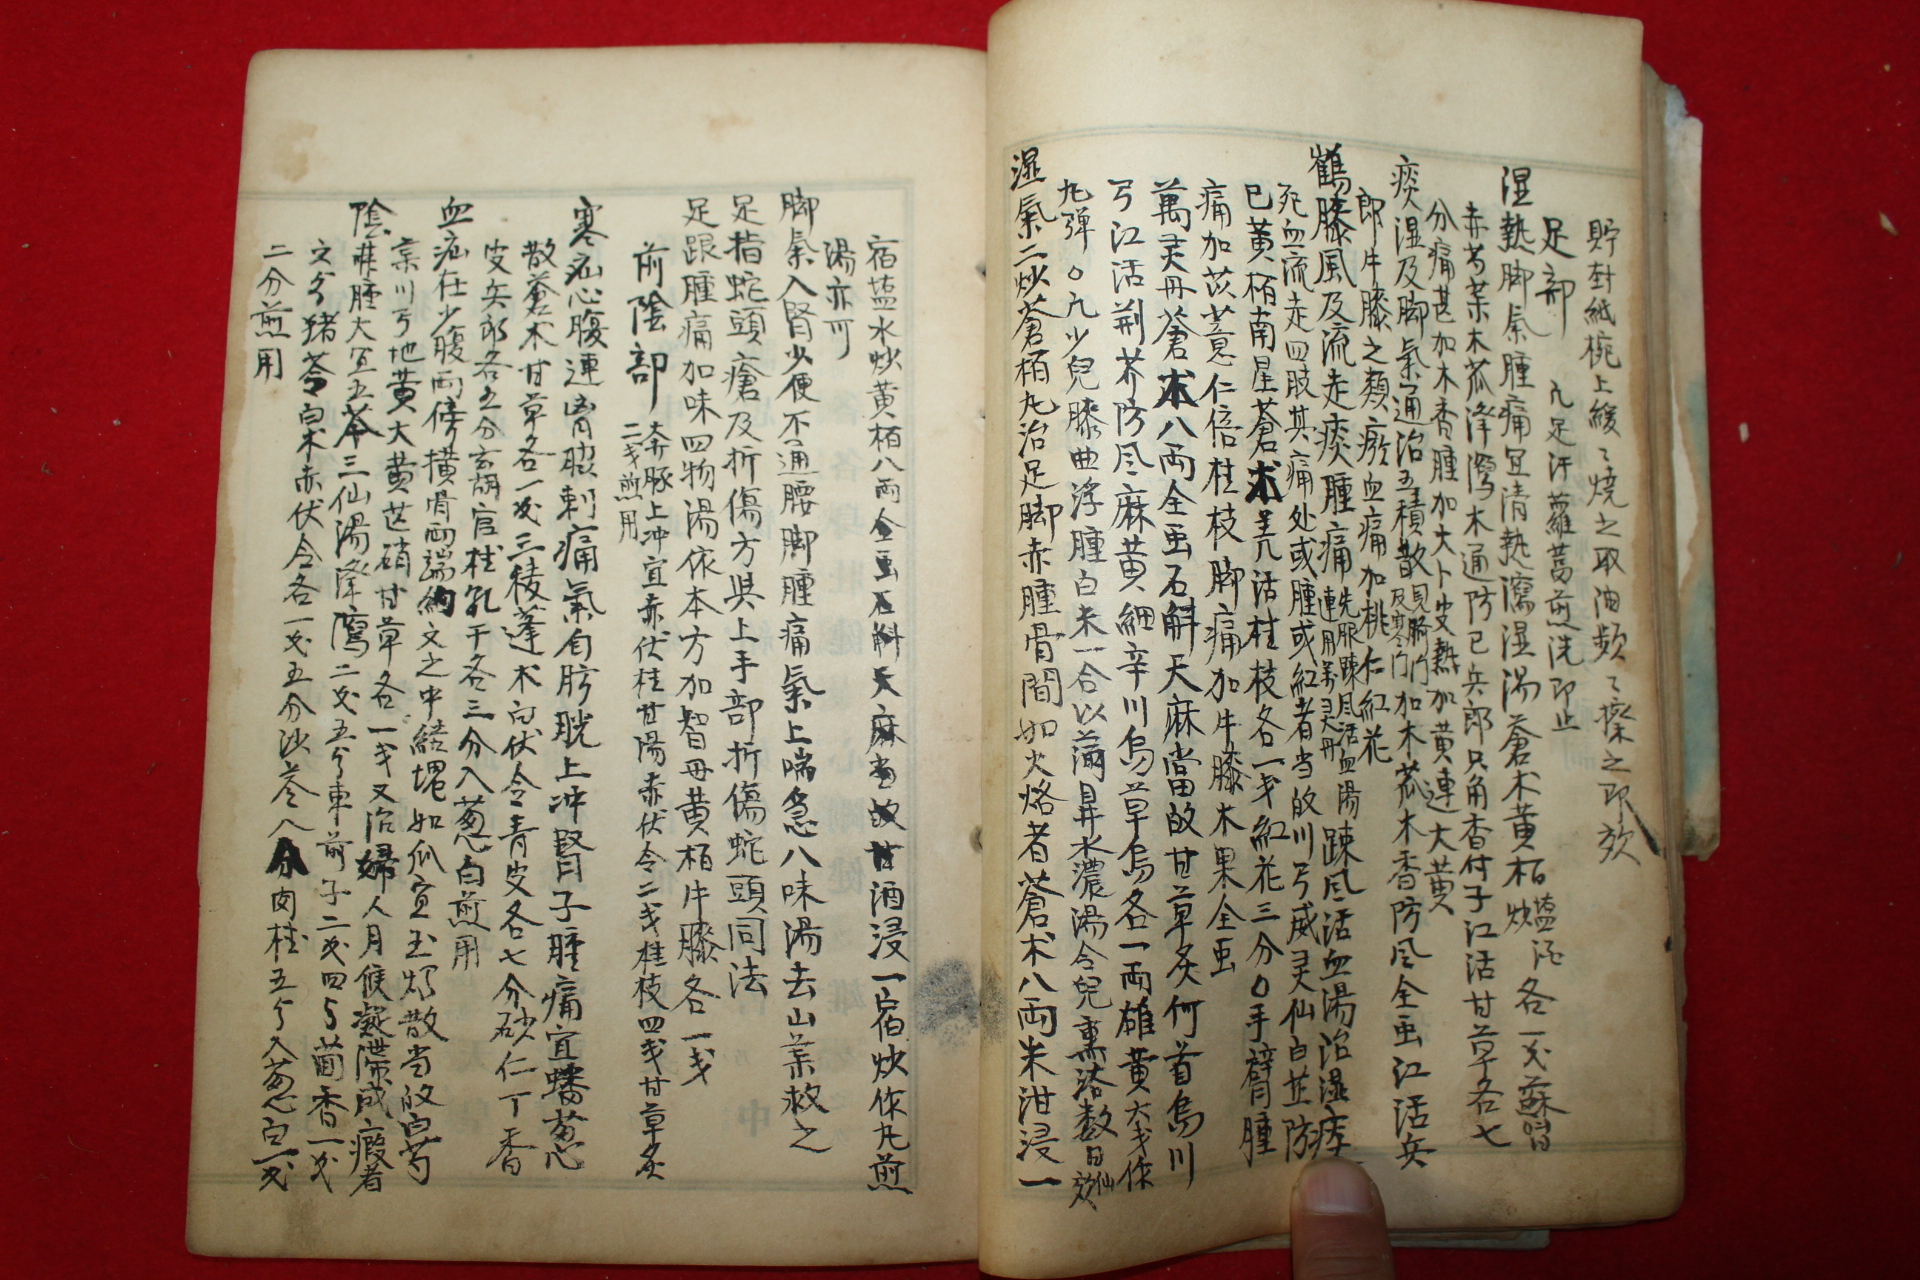 貯封紙椀上緩〻燒之取油頻〻搽之即效
足部 凡足汗蘿葍煎洗即止
湿熱脚氣腫痛宜清熱瀉湿湯蒼朮黃栢塩酒炒各一戔蘇叶
赤芍葉木苽澤瀉木通防己兵郎只角香付子江活甘草各七
分痛甚加木香腫加大卜皮熱加黃連大黃
痰湿及脚氣通治五積散見胸門及寒門加木苽木香防风全虫江活兵
郎牛膝之類瘀血痛加桃仁紅花
鶴膝風及流走痰腫痛先服踈风活血湯連用萬灵丹踈风活血湯治湿痰
死血流走四肢其痛处或腫或紅者当敀川芎威灵仙白芷防
已黃栢南星蒼朮羌活桂枝各一戔紅花三分〇手臂腫
痛加苡薏仁倍桂枝脚痛加牛膝木果全虫
萬灵丹蒼朮八両全虫石斛天麻當敀甘草炙何首烏川
芎江活荊芥防风麻黃細辛川烏草烏各一両雄黃六戔作
丸弹〇凡少兒膝曲浮腫白米一合以滿昇水濃湯令兒熏洛数日仙效
湿氣二炒蒼栢丸治足脚赤腫骨間如火烙者蒼朮八両米泔浸一
宿塩水炒黃栢八両全虫石斛天麻当敀甘酒浸一宿炒作丸煎
湯亦可
脚氣入腎少便不通腰脚腫痛氣上喘急八味湯去山葉救之
足指蛇頭瘡及折傷方與上手部折傷蛇頭同法
足跟腫痛加味四物湯依本方加智母黃栢牛膝各一戔
前陰部 奔豚上冲宜赤伏桂甘湯赤伏令二戔桂枝四戔甘草炙二戔煎用
寒疝心腹連脇刺痛氣自膀胱上冲腎子腫痛宜蟠葱
散蒼朮甘草各一戔三稜蓬朮白伏令青皮各七分砂仁丁香
皮兵郎各五分玄胡官桂乳干各三分入葱白煎用
血疝在少腹両傍橫骨両端約文之中結塊如瓜宜玉燭散当敀白芍
葉川芎地黃大黃芒硝甘草各一戔又治婦人月候凝滯成瘕者
陰腫大宜五苓三仙湯澤瀉二戔五分車前子二戔四分茴香一戔
六分猪苓白朮赤伏令各一戔五分沙蔘八分肉桂五分入葱白一戔
二分煎用